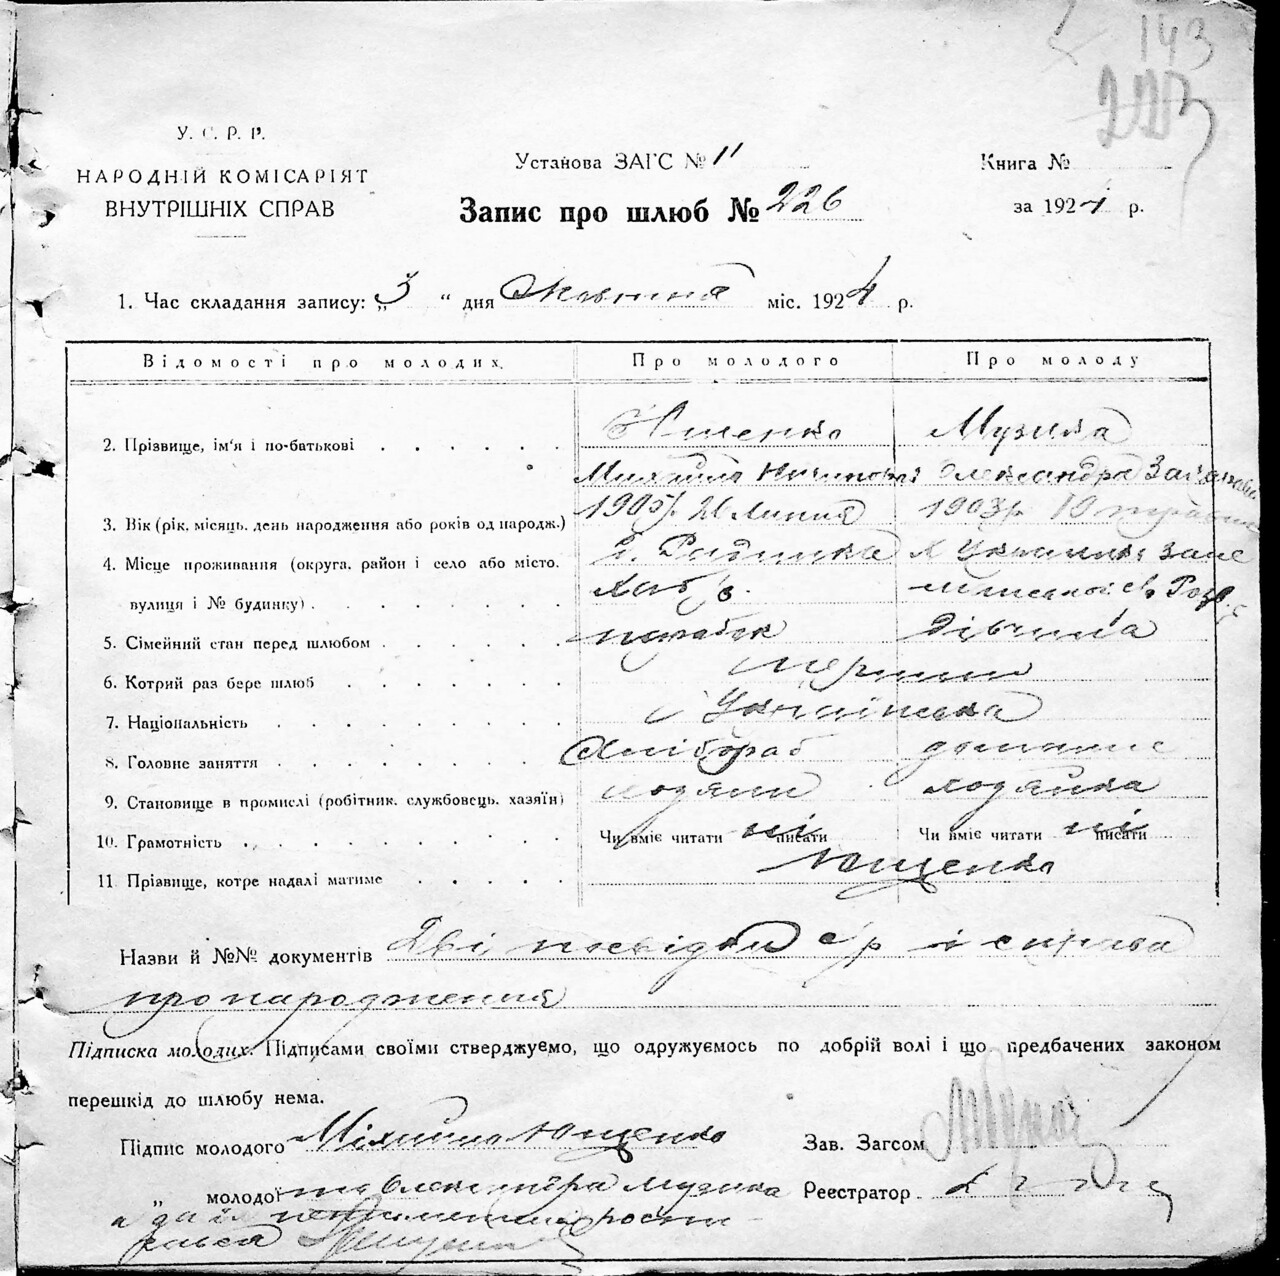 143
223
У. С. Р. Р.
НАРОДНІЙ КОМІСАРІЯТ
ВНУТРІШНІХ СПРАВ
Установа ЗАГС № 11
Запис про шлюб № 226
Книга №
за 1924 р.
1. Час складання запису: „3“ дня Жовтня міс. 1924 р.
Відомості про молодих. Про молодого Про молоду
2. Прізвище, ім'я і по-батькові Ющенко Музика
Михайло Олександра
3. Вік (рік. місяць. день народження або років од народж.) 1905 р. 21 Липня 1903 р. 10
4. Місце проживання (округа, район і село або місто.
вулиця і № будинку).
5. Сімейний стан перед шлюбом парубок дівчина
6. Котрий раз бере шлюб перший
7. Національність Українська
8. Головне заняття Хлібороб домашнє
9. Становище в промислі (робітник. службовець. хазяїн) хазяїн хазяйка
10. Грамотність Чи вміє читати ні писати Чи вміє читати ні писати
11 Прізвище, котре надалі матиме Ющенко
Назви й №№ документів Дві посвідки с/р і справа
про народження
Підписка молодих. Підписами своїми стверджуємо, що одружуємось по добрій волі і що предбачених законом
перешкід до шлюбу нема.
Підпис молодого Міхайло Ющенко Зав. Загсом
„ молодої Олександра Музика Реєстратор
а за їх неписьменних розпи-
рався